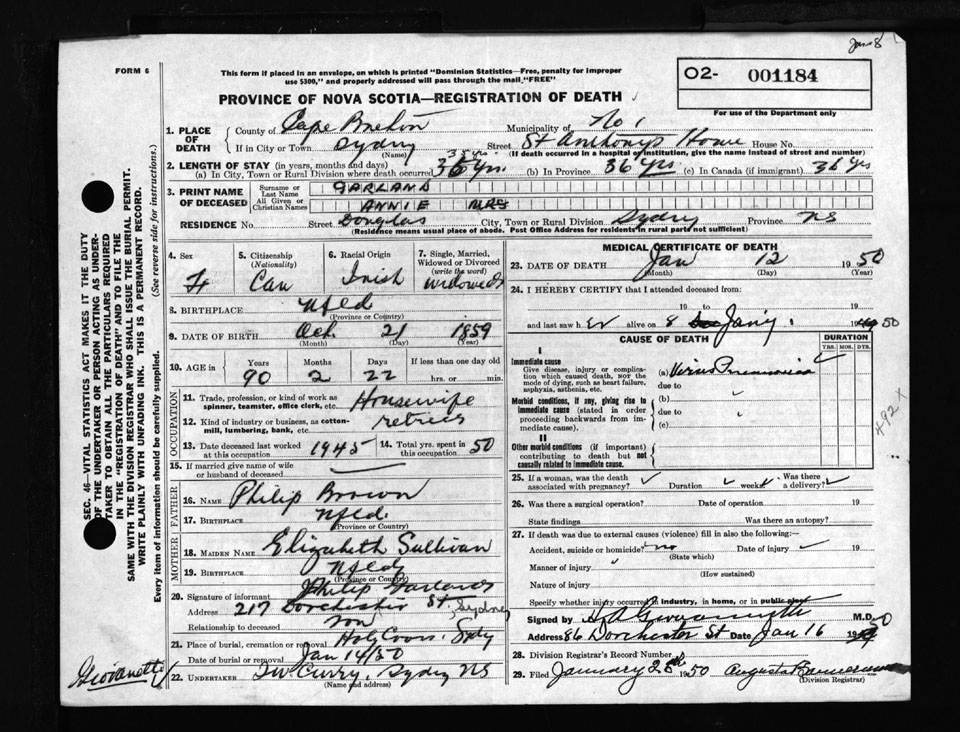 Jan 8
FORM 6
This form if placed in an envelope, on which is printed "Dominion Statistics—Free, penalty for improper
use $300," and properly addressed will pass through the mail "FREE"
O2- 001184
PROVINCE OF NOVA SCOTIA—REGISTRATION OF DEATH
For use of the Department only
1. PLACE OF DEATH County of Cape Breton Municipality of No 1
If in City or Town Sydney Street St Anthony's Home House No.
(Name) (If death occurred in a hospital or institution, give the name instead of street and number)
2. LENGTH OF STAY (in years, months and days)
(a) In City, Town or Rural Division where death occurred 36 yrs. (b) In Province 36 yrs (c) In Canada (if immigrant) 36 yrs
3. PRINT NAME OF DECEASED Surname or Last Name GARLAND
All Given or Christian Names ANNIE MRS
RESIDENCE No. Street Douglas City, Town or Rural Division Sydney Province NS
(Residence means usual place of abode. Post Office Address for residents in rural parts not sufficient)
4. Sex F
5. Citizenship (Nationality) Can
6. Racial Origin Irish
7. Single, Married, Widowed or Divorced (write the word) Widowed
8. BIRTHPLACE Nfld
(Province or Country)
9. DATE OF BIRTH Oct. 21 1859
(Month) (Day) (Year)
10. AGE in Years 90 Months 2 Days 22 If less than one day old hrs. or min.
OCCUPATION
11. Trade, profession, or kind of work as spinner, teamster, office clerk, etc. Housewife
12. Kind of industry or business, as cotton-mill, lumbering, bank, etc.
13. Date deceased last worked at this occupation 1945 14. Total yrs. spent in this occupation 50
15. If married give name of wife or husband of deceased
FATHER
16. NAME Philip Brown
17. BIRTHPLACE Nfld.
(Province or Country)
MOTHER
18. MAIDEN NAME Elizabeth Sullivan
19. BIRTHPLACE Nfld
(Province or Country)
20. Signature of informant Philip Garland
Address 217 Dorchester St Sydney
Relationship to deceased son
21. Place of burial, cremation or removal Holy Cross. Sydy
Date of burial or removal Jan 14/50
22. UNDERTAKER Curry, Sydney NS
(Name and address)
Giovanetti
MEDICAL CERTIFICATE OF DEATH
23. DATE OF DEATH Jan 12 1950
(Month) (Day) (Year)
24. I HEREBY CERTIFY that I attended deceased from:
19 to 19
and last saw her alive on 8 Jan'y 1950
CAUSE OF DEATH DURATION
YRS. MOS. DYS.
I
Immediate cause
Give disease, injury or complication which caused death, NOT the mode of dying, such as heart failure, asphyxia, asthenia, etc.
(a) Virus Pneumonia
due to
Morbid conditions, if any, giving rise to immediate cause (stated in order proceeding backwards from immediate cause).
(b)
due to
(c)
II
Other morbid conditions (if important) contributing to death but not causally related to immediate cause.
492 X
25. If a woman, was the death associated with pregnancy? Duration weeks Was there a delivery?
26. Was there a surgical operation? Date of operation 19
State findings Was there an autopsy?
27. If death was due to external causes (violence) fill in also the following:—
Accident, suicide or homicide? no Date of injury 19
(State which)
Manner of injury
(How sustained)
Nature of injury
Specify whether injury occurred in industry, in home, or in public place
Signed by M.D.
Address 86 Dorchester St Date Jan 16 1950
28. Division Registrar's Record Number
29. Filed January 25th 1950 Augusta
(Division Registrar)
SEC. 46—VITAL STATISTICS ACT MAKES IT THE DUTY
OF THE UNDERTAKER OR PERSON ACTING AS UNDER-
TAKER TO OBTAIN ALL THE PARTICULARS REQUIRED
IN THE "REGISTRATION OF DEATH" AND TO FILE THE
SAME WITH THE DIVISION REGISTRAR WHO SHALL ISSUE THE BURIAL PERMIT.
WRITE PLAINLY WITH UNFADING INK. THIS IS A PERMANENT RECORD.
Every item of information should be carefully supplied. (See reverse side for instructions.)